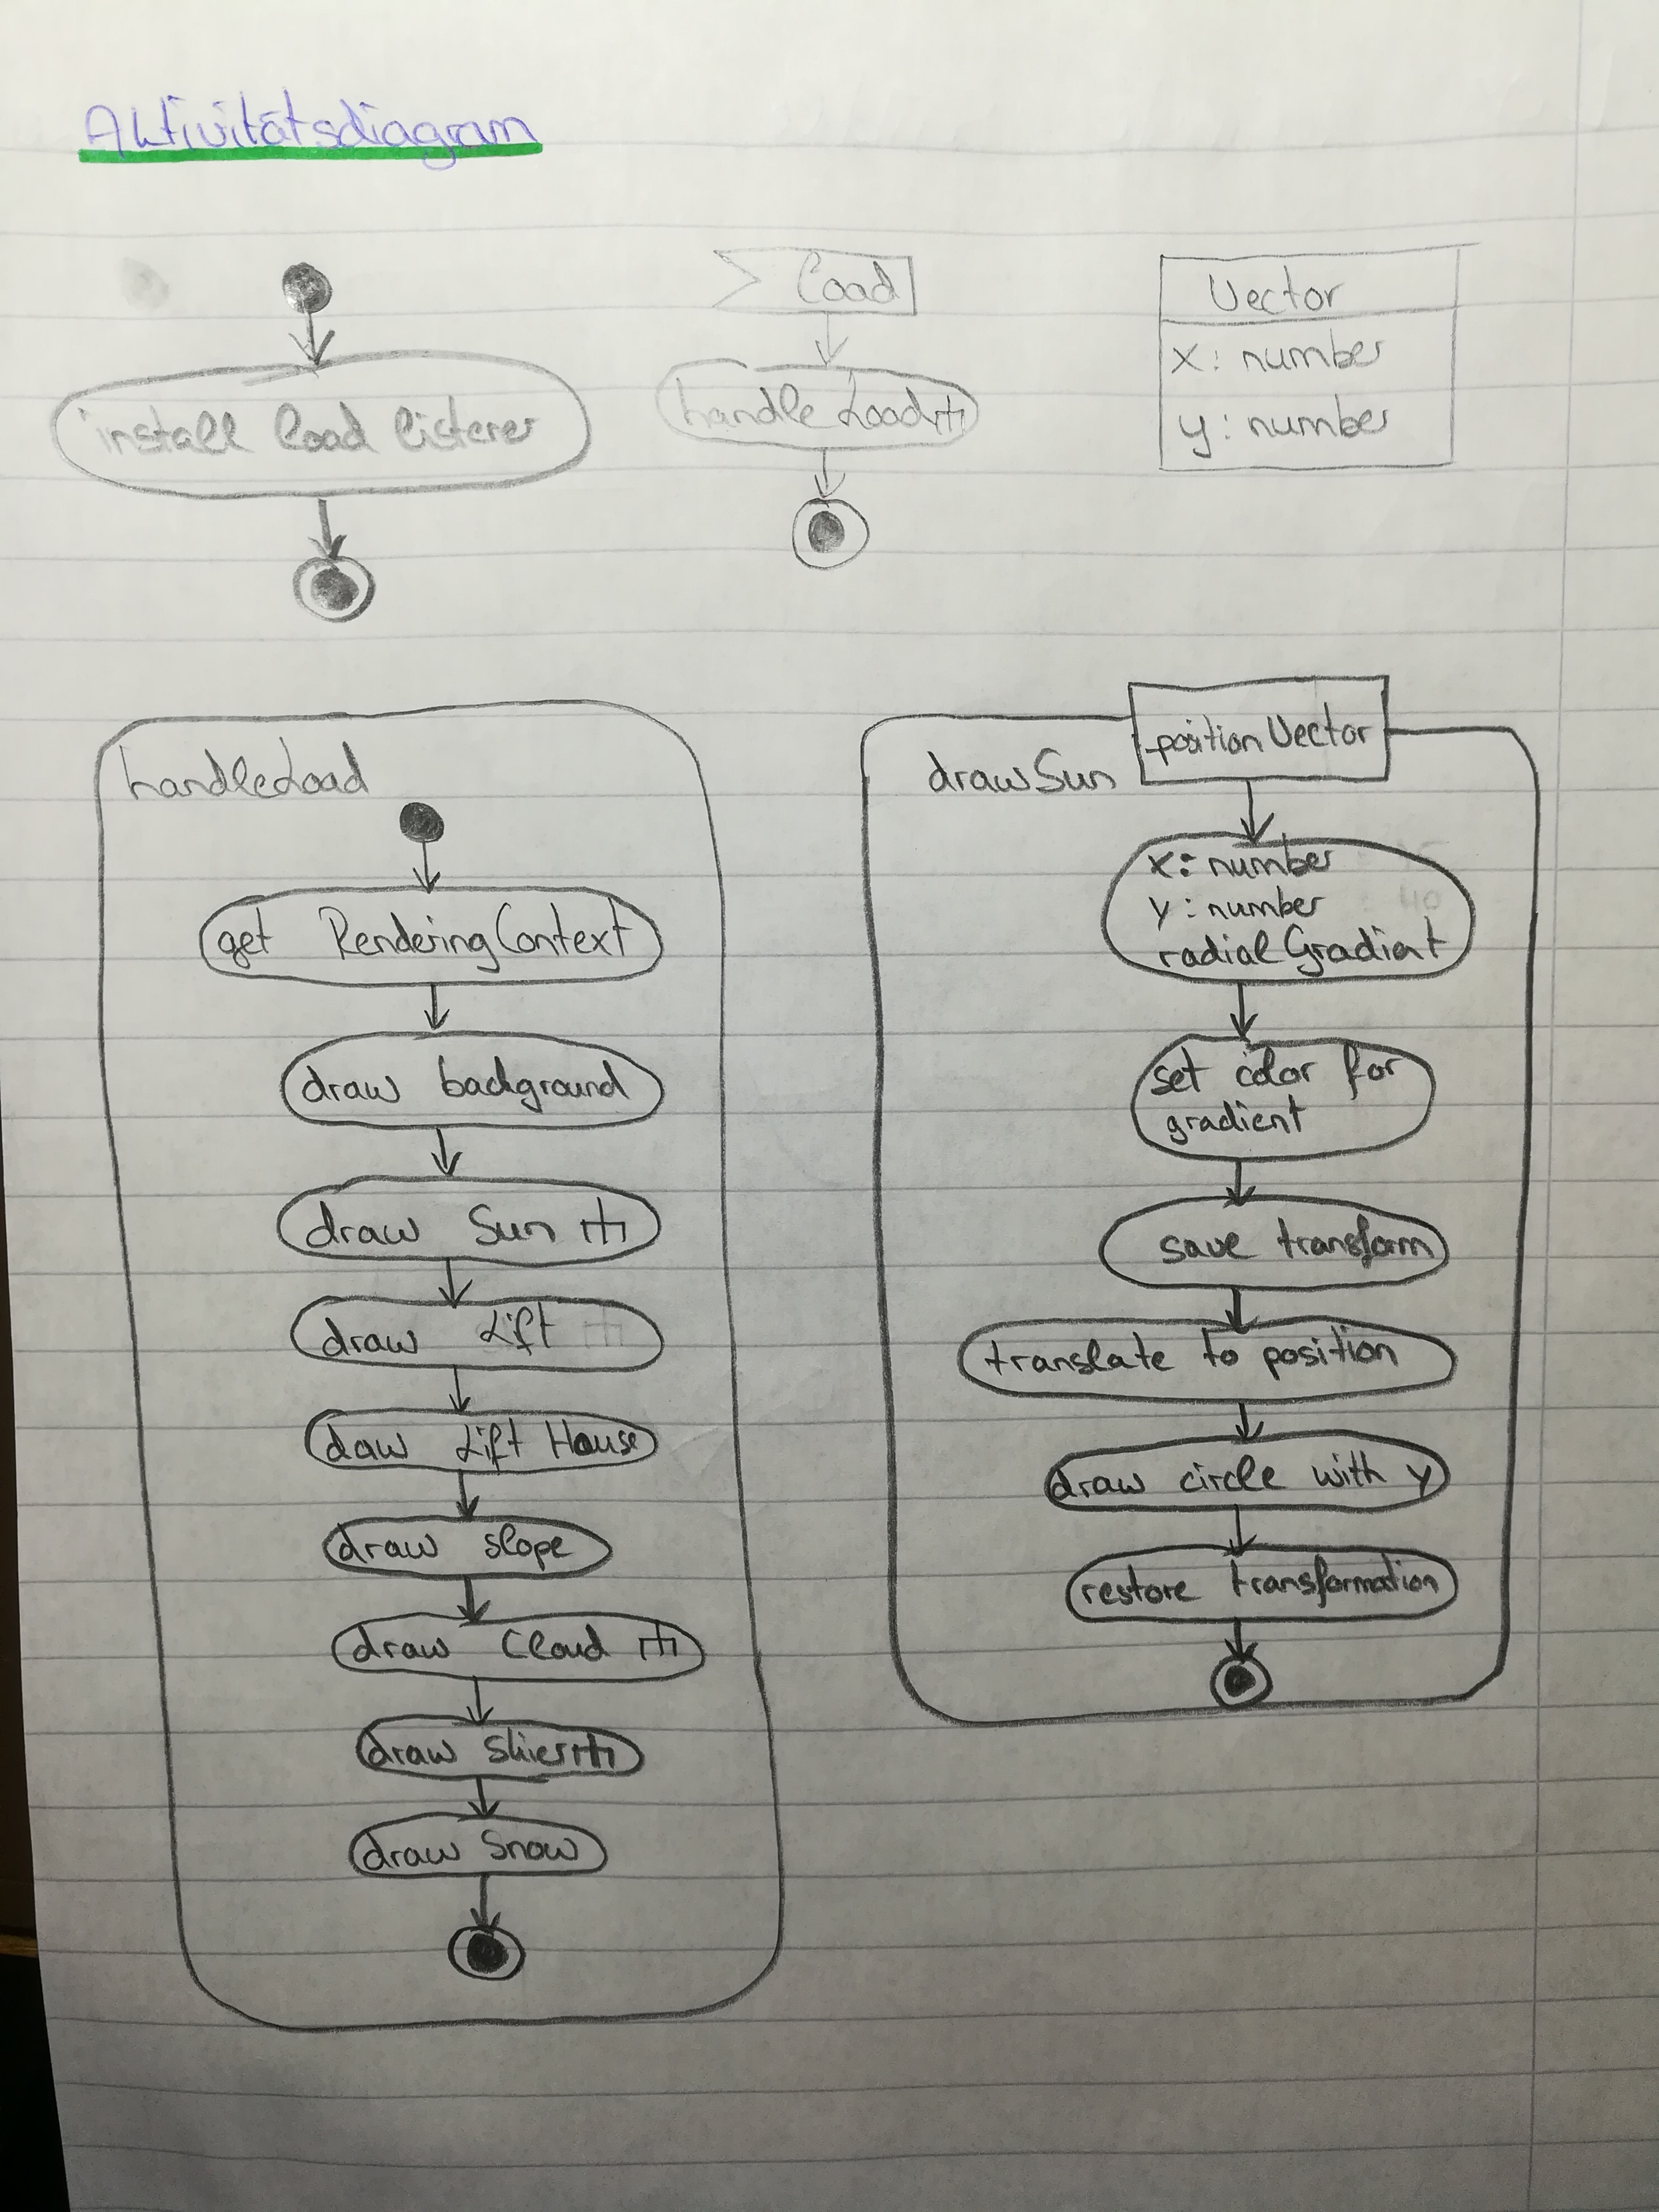 Aktivitätsdiagram
install load listener
load
handleLoad
Vector
x: number
y: number
handleLoad
get RenderingContext
draw background
draw Sun
draw Lift
daw Lift House
draw slope
draw Cloud
draw Skier
draw Snow
drawSun
positionVector
x: number
y: number
radialGradiat
set color for
gradient
save transform
translate to position
draw circle with y
restore transformation